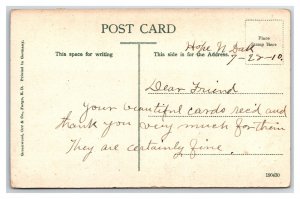 POST CARD
Hope N. Dak
7-22-10
Place
Stamp Here
This space for writing
This side is for the Address.
Dear Friend
Your beautiful cards rec'd and
thank you very much for them
They are certainly fine.
Greenwood, Orr & Co., Fargo, N. D. Printed in Germany.
190430